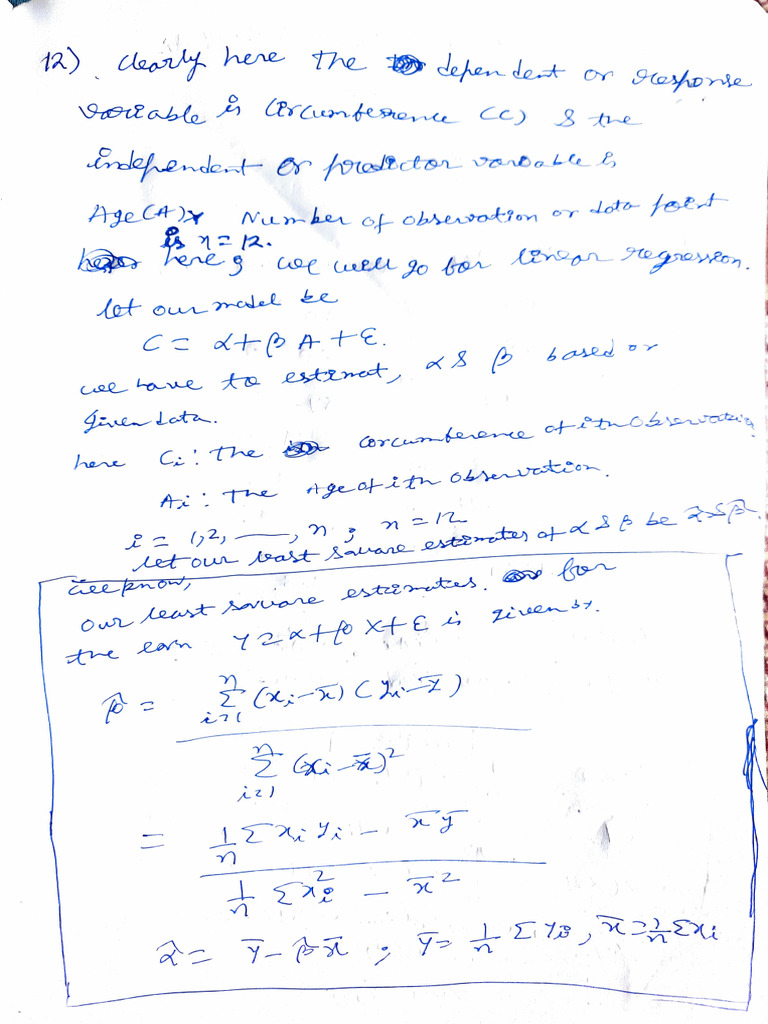 12) clearly here the dependent or response
variable is circumference (C) & the
independent or predictor variable is
Age(A). Number of observation or data point
is n = 12.
here, we will go for linear regression.
let our model be
C = α + β A + ε.
we have to estimat, α & β based on
given data.
here Ci : The circumference of ith observation
Ai : The Age of ith observation.
i = 1, 2, —, n ; n = 12
let our least square estimates of α & β be α̂ & β̂.
we know,
our least square estimates. for
the eqn Y = α + β X + ε is given by.
β̂ = Σ_{i=1}^{n} (xi - x̄) (yi - ȳ)
Σ_{i=1}^{n} (xi - x̄)²
= 1/n Σ xi yi - x̄ ȳ
1/n Σ xi² - x̄²
α̂ = ȳ - β̂ x̄ ; ȳ = 1/n Σ yi, x̄ = 1/n Σ xi